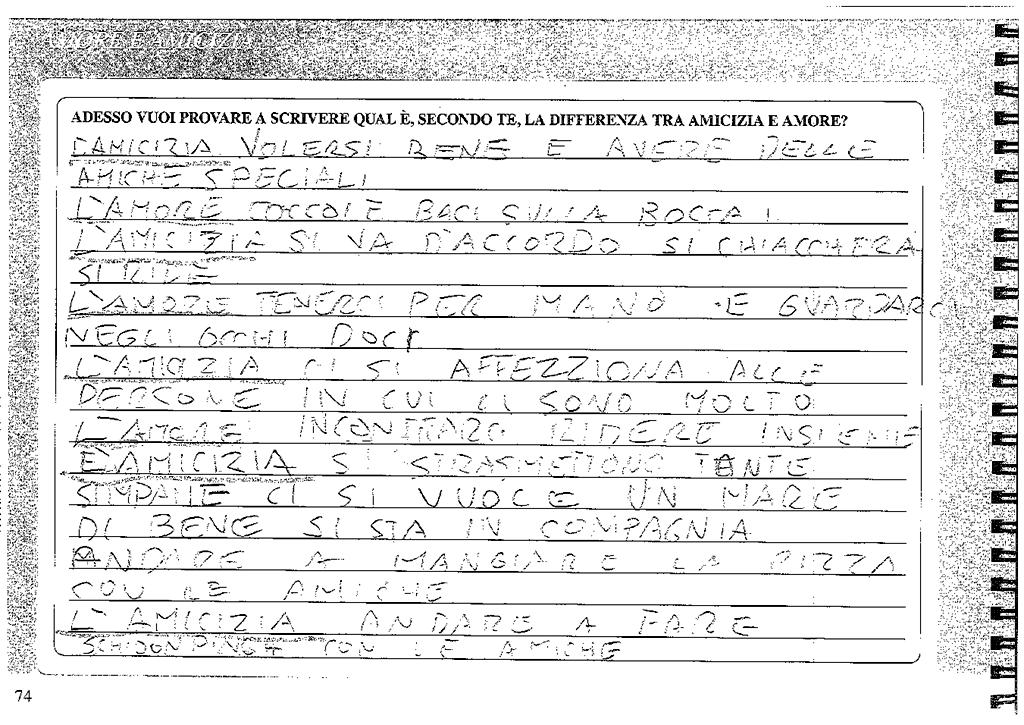 AMORE E AMICIZIA
ADESSO VUOI PROVARE A SCRIVERE QUAL È, SECONDO TE, LA DIFFERENZA TRA AMICIZIA E AMORE?
L'AMICIZIA VOLERSI BENE E AVERE DELLE
AMICHE SPECIALI
L'AMORE COCCOLE BACI SULLA BOCCA
L'AMICIZIA SI VA D'ACCORDO SI CHIACCHERA
SI RIDE
L'AMORE TENERCI PER MANO E GUARDARCI
NEGLI OCCHI DOCI
L'AMICIZIA CI SI AFFEZZIONA ALLE
PERSONE IN CUI CI SONO MOLTO
L'AMORE INCONTRARCI RIDERE INSIEME
L'AMICIZIA SI STRASMETTONO TANTE
SIMPATIE CI SI VUOLE UN MARE
DI BENE SI STA IN COMPAGNIA
ANDARE A MANGIARE LA PIZZA
CON LE AMICHE
L'AMICIZIA ANDARE A FARE
CON LE AMICHE
74